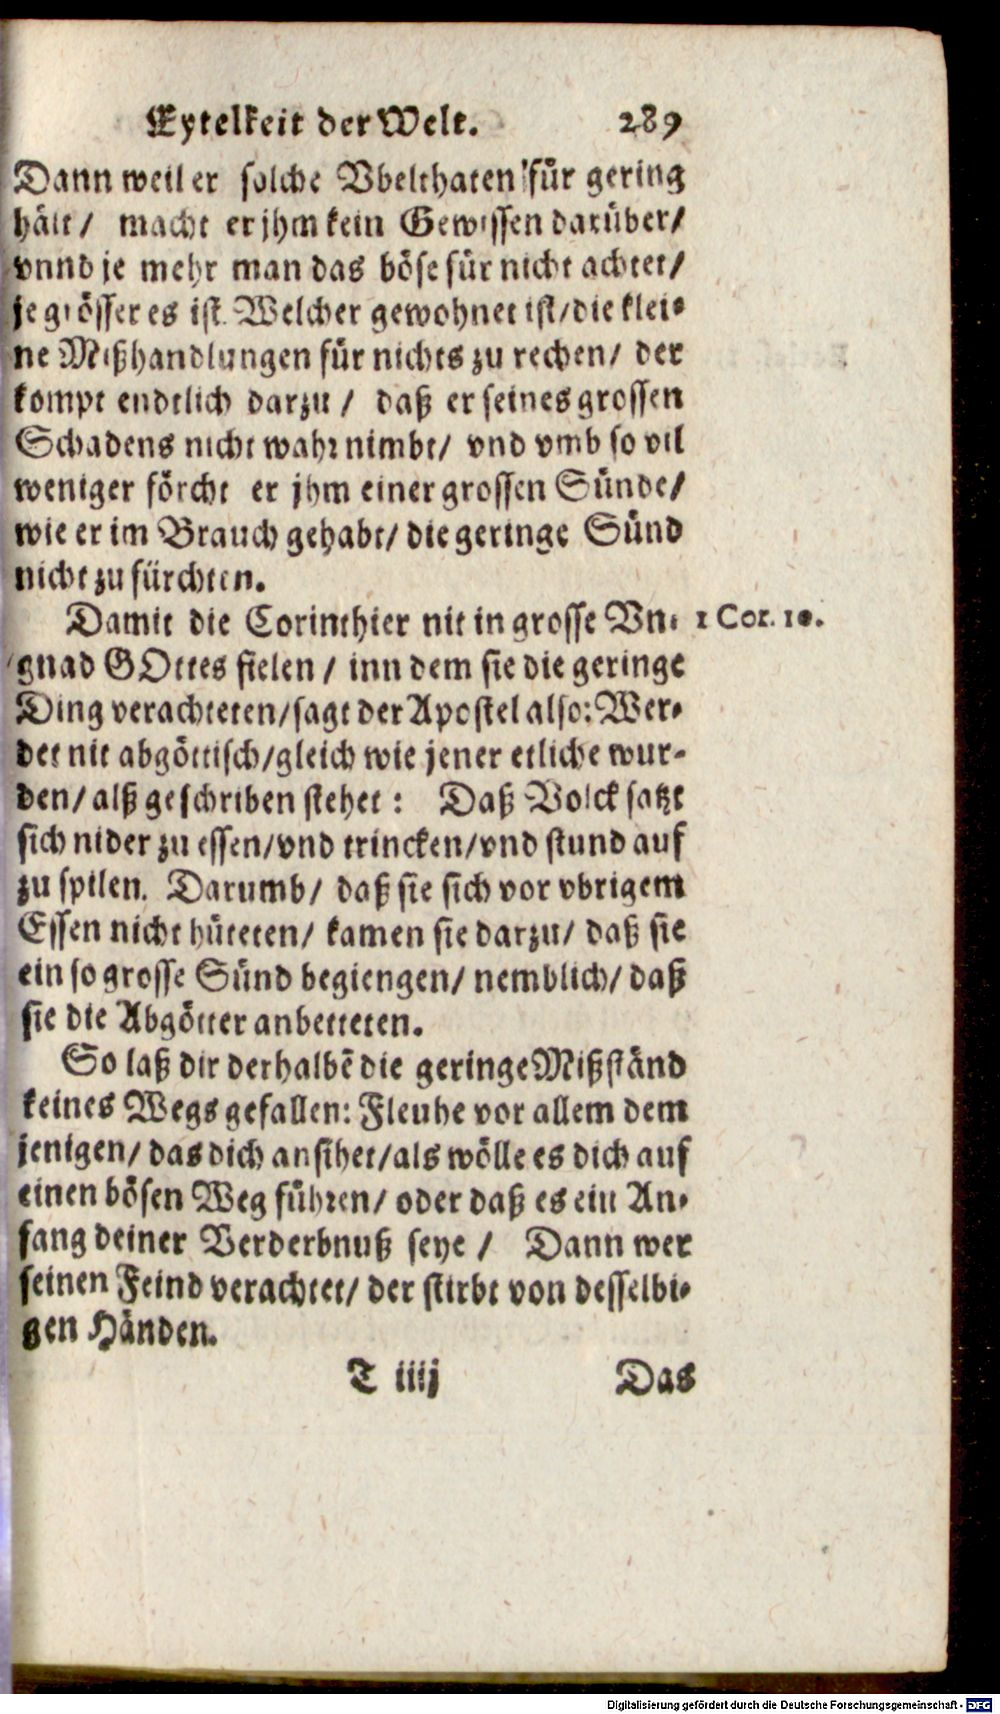 Eytelkeit der Welt. 289
Dann weil er solche Vbelthaten für gering
hält / macht er jhm kein Gewissen darüber /
vnnd je mehr man das böse für nicht achtet /
je grösser es ist. Welcher gewohnet ist / die klei-
ne Mißhandlungen für nichts zu rechen / der
kompt endtlich darzu / daß er seines grossen
Schadens nicht wahr nimbt / vnd vmb so vil
weniger förcht er jhm einer grossen Sünde /
wie er im Brauch gehabt / die geringe Sünd
nicht zu fürchten.
Damit die Corinthier nit in grosse Vn- 1 Cor. 10.
gnad GOttes fielen / inn dem sie die geringe
Ding verachteten / sagt der Apostel also: Wer-
det nit abgöttisch / gleich wie jener etliche wur-
den / alß geschriben stehet : Daß Volck satzt
sich nider zu essen / vnd trincken / vnd stund auf
zu spilen. Darumb / daß sie sich vor vbrigem
Essen nicht hüteten / kamen sie darzu / daß sie
ein so grosse Sünd begiengen / nemblich / daß
sie die Abgötter anbetteten.
So laß dir derhalbē die geringe Mißständ
keines Wegs gefallen: Fleuhe vor allem dem
jenigen / das dich ansihet / als wölle es dich auf
einen bösen Weg führen / oder daß es ein An-
fang deiner Verderbnuß seye / Dann wer
seinen Feind verachtet / der stirbt von desselbi-
gen Händen.
T iiij Das
Digitalisierung gefördert durch die Deutsche Forschungsgemeinschaft - DFG